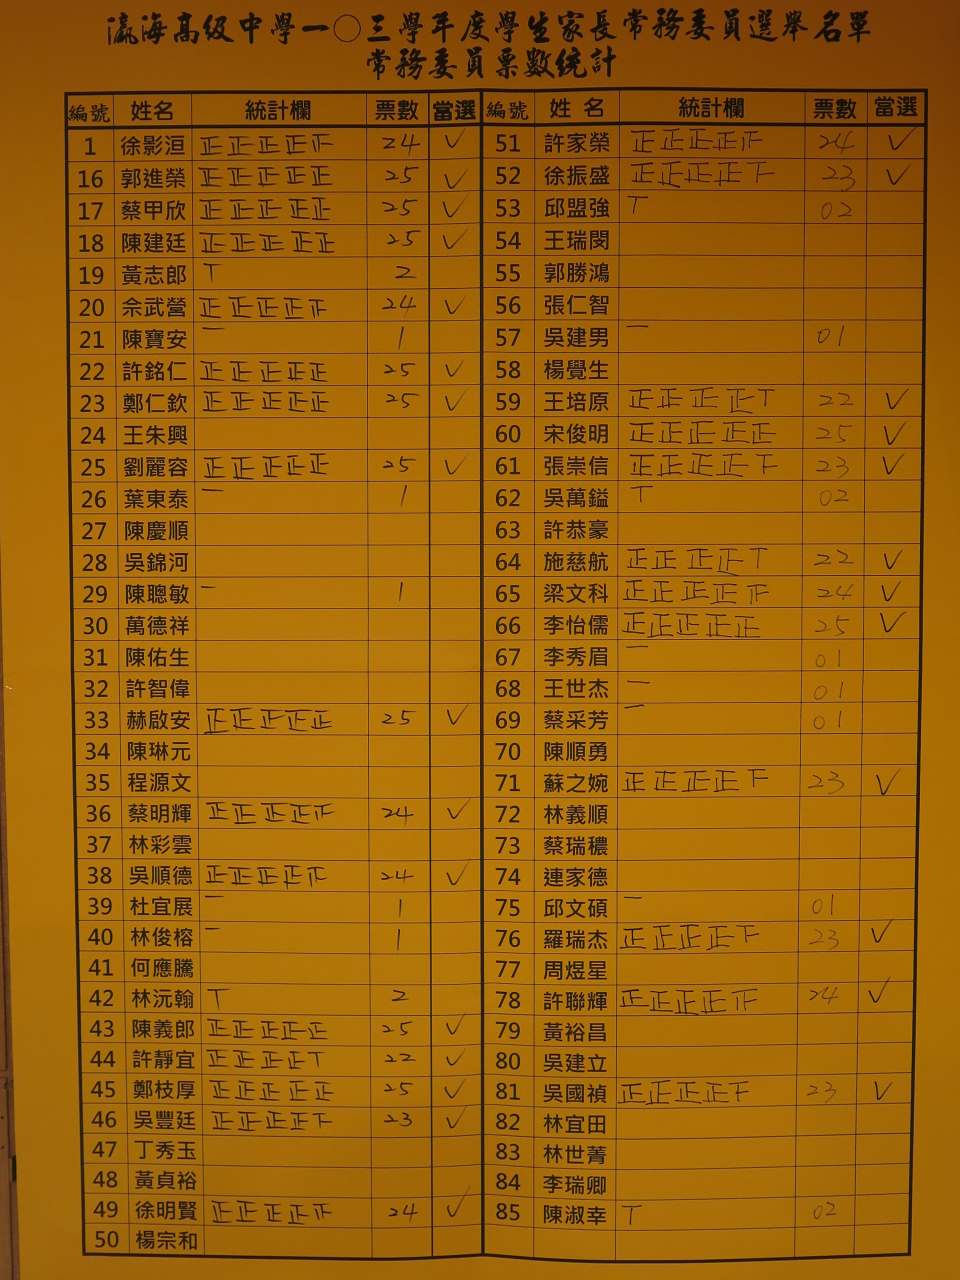 瀛海高級中學一〇三學年度學生家長常務委員選舉名單
常務委員票數統計
編號 姓名 統計欄 票數 當選 編號 姓名 統計欄 票數 當選
1 徐影洹 正正正正 24 ✓ 51 許家榮 正正正正 24 ✓
16 郭進榮 正正正正正 25 ✓ 52 徐振盛 正正正正下 23 ✓
17 蔡甲欣 正正正正正 25 ✓ 53 邱盟強 丅 02
18 陳建廷 正正正正正 25 ✓ 54 王瑞閔
19 黃志郎 丅 2 55 郭勝鴻
20 余武營 正正正正 24 ✓ 56 張仁智
21 陳寶安 一 1 57 吳建男 一 01
22 許銘仁 正正正正正 25 ✓ 58 楊覺生
23 鄭仁欽 正正正正正 25 ✓ 59 王培原 正正正正丅 22 ✓
24 王朱興 60 宋俊明 正正正正正 25 ✓
25 劉麗容 正正正正正 25 ✓ 61 張崇信 正正正正下 23 ✓
26 葉東泰 一 1 62 吳萬鎰 丅 02
27 陳慶順 63 許恭豪
28 吳錦河 64 施慈航 正正正正丅 22 ✓
29 陳聰敏 一 1 65 梁文科 正正正正 24 ✓
30 萬德祥 66 李怡儒 正正正正正 25 ✓
31 陳佑生 67 李秀眉 一 01
32 許智偉 68 王世杰 一 01
33 赫啟安 正正正正正 25 ✓ 69 蔡采芳 一 01
34 陳琳元 70 陳順勇
35 程源文 71 蘇之婉 正正正正下 23 ✓
36 蔡明輝 正正正正 24 ✓ 72 林義順
37 林彩雲 73 蔡瑞穠
38 吳順德 正正正正 24 ✓ 74 連家德
39 杜宜展 一 1 75 邱文碩 一 01
40 林俊榕 一 1 76 羅瑞杰 正正正正下 23 ✓
41 何應騰 77 周煜星
42 林沅翰 丅 2 78 許聯輝 正正正正 24 ✓
43 陳義郎 正正正正正 25 ✓ 79 黃裕昌
44 許靜宜 正正正正丅 22 ✓ 80 吳建立
45 鄭枝厚 正正正正正 25 ✓ 81 吳國禎 正正正正下 23 ✓
46 吳豐廷 正正正正下 23 ✓ 82 林宜田
47 丁秀玉 83 林世菁
48 黃貞裕 84 李瑞卿
49 徐明賢 正正正正 24 ✓ 85 陳淑幸 丅 02
50 楊宗和